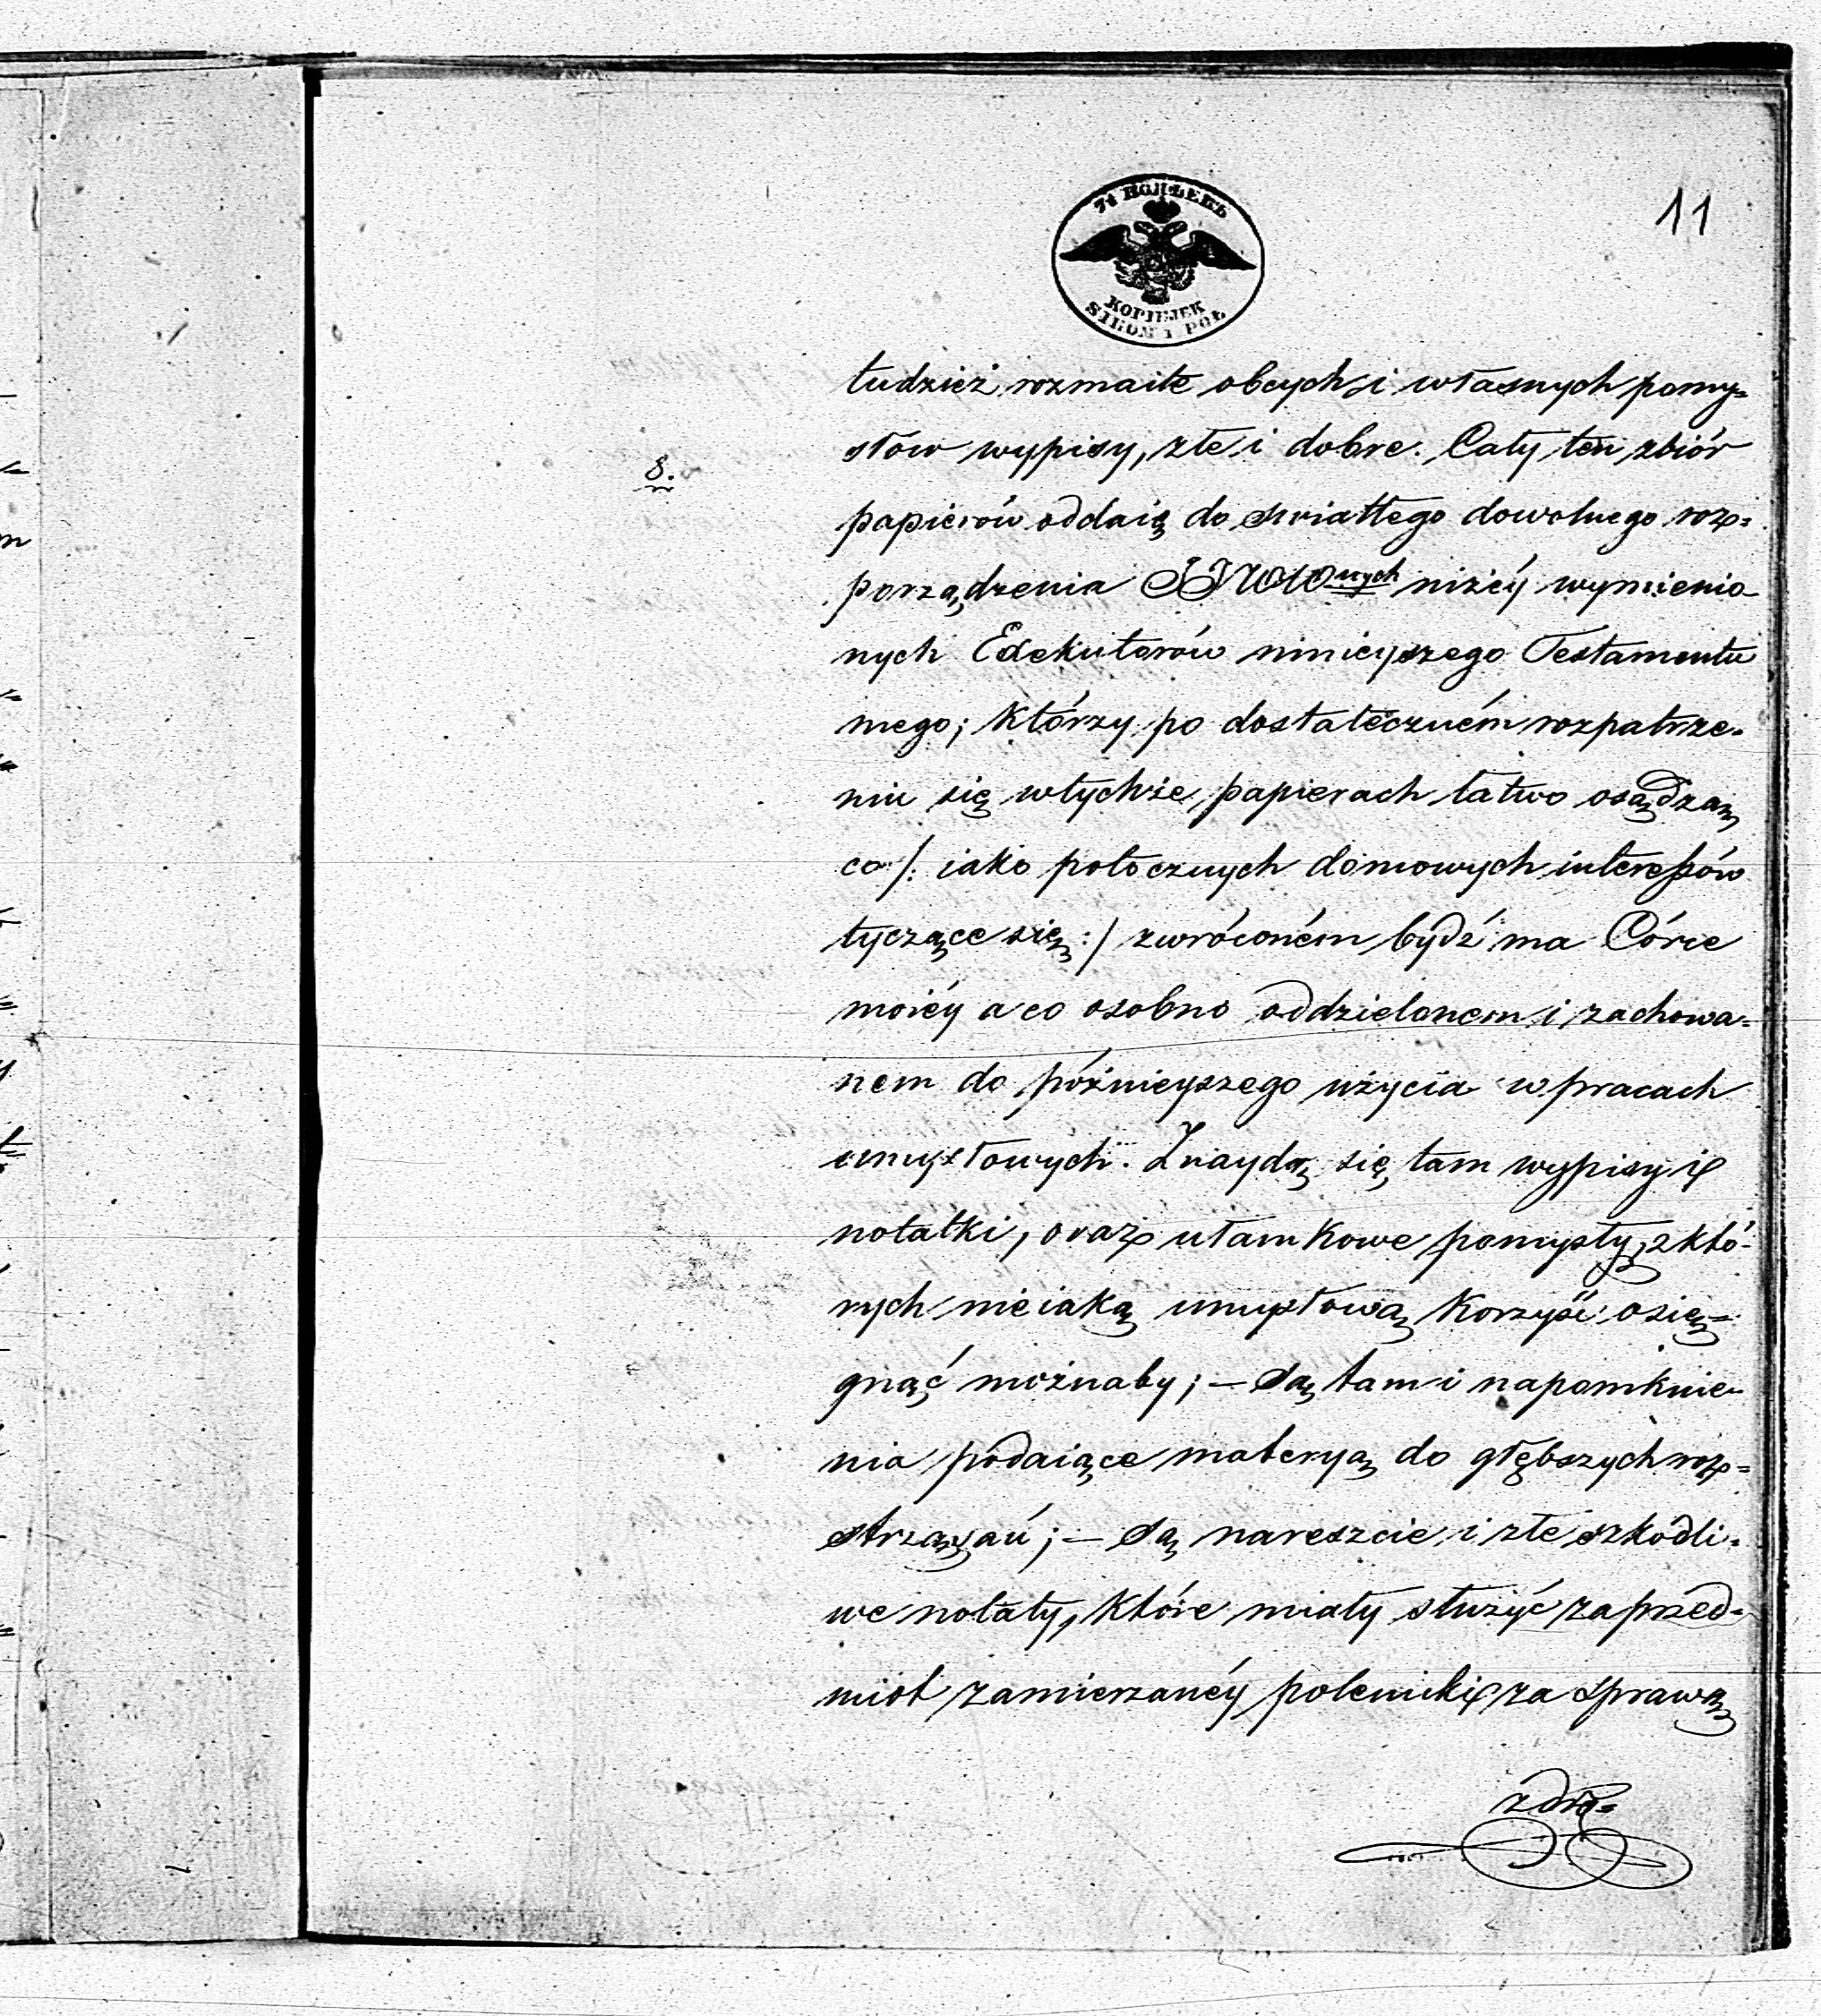 11
7½ КОПѢЕКЪ
KOPIEJEK
SIEDM I PÓŁ
tudzież rozmaite obcych i własnych pomy=
słów wypisy, złe i dobre. Cały ten zbiór
8.
papierów oddaię do światłego dowolnego roz=
porządzenia JJWW^nych niżéy wymienio=
nych Exekutorów ninieyszego Testamentu
mego; którzy po dostateczném rozpatrze=
niu się wtychże papierach łatwo osądzą,
co /: iako potocznych domowych interessów
tyczące się :/ zwróconém bydź ma Córce
moiéy a co osobno oddzielonem i zachowa=
nem do późnieyszego użycia w pracach
umysłowych. Znaydą się tam wypisy i
notatki, oraz ułamkowe pomysły, z któ=
rych nieiaką umysłową korzyść osię=
gnąć możnaby; — są tam i napomknie=
nia podaiące materyą do głębszych roz=
strząsań; — są nareszcie i złe szkodli=
we notaty, które miały służyć za przed=
miot zamierzanéy polemiki za sprawą
zdro=